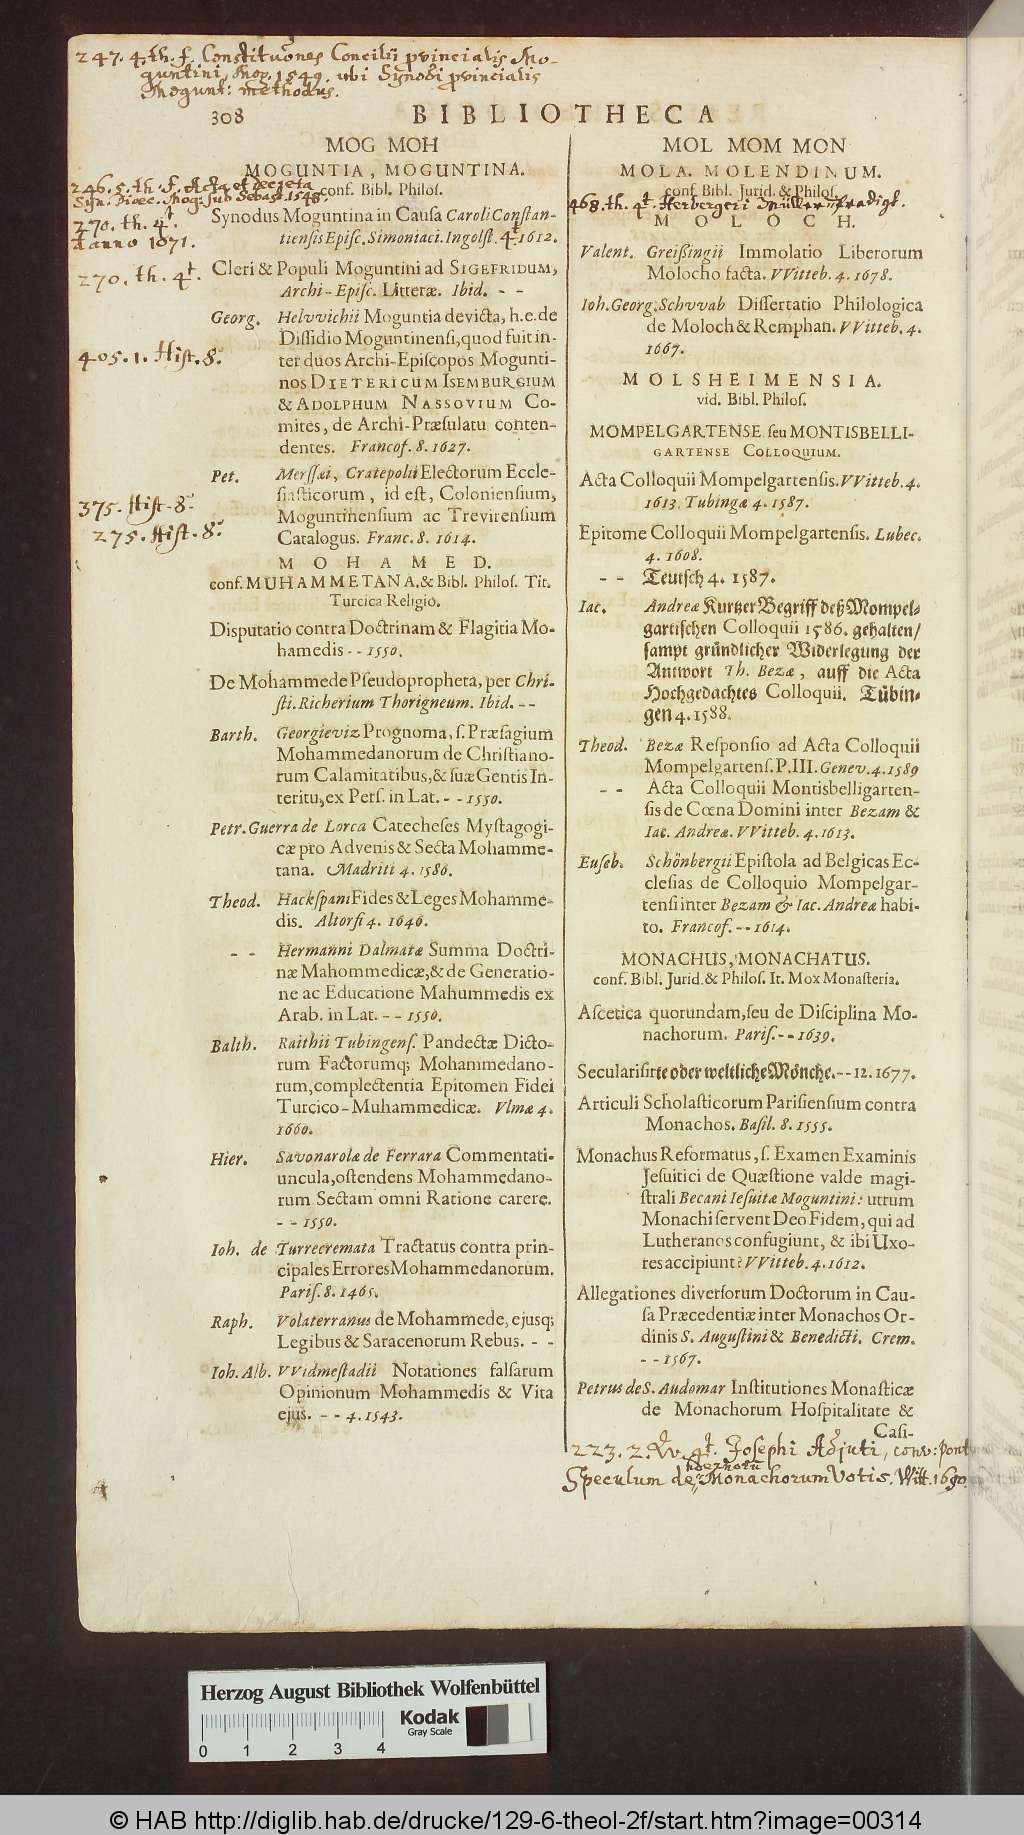 247. 4. th. f. Constitutiones Concilii pvincialis Mo-
guntini, Mog. 1549. ubi Synodi pvincialis
Mogunt: methodus.
308
BIBLIOTHECA
MOG MOH
MOGUNTIA, MOGUNTINA.
246. 5. th. f. Acta et decreta
conf. Bibl. Philoſ.
Syn. Diœc. Mog: sub Sebast. 1548.
270. th. 4t.
Synodus Moguntina in Cauſa Caroli Conſtan-
d anno 1071.
tienſis Epiſc. Simoniaci. Ingolſt. 4. 1612.
270. th. 4t.
Cleri & Populi Moguntini ad SIGEFRIDUM,
Archi-Epiſc. Litteræ. Ibid. - -
Georg. Helvvichii Moguntia devicta, h.e. de
Diſſidio Moguntinenſi, quod fuit in-
405. 1. Hist. 8.
ter duos Archi-Epiſcopos Mogunti-
nos DIETERICUM ISEMBURGIUM
& ADOLPHUM NASSOVIUM Co-
mites, de Archi-Præſulatu conten-
dentes. Francof. 8. 1627.
Pet. Merſſæi, Cratepolii Electorum Eccle-
ſiaſticorum, id eſt, Colonienſium,
375. Hist. 8.
Moguntinenſium ac Trevirenſium
275. Hist. 8.
Catalogus. Franc. 8. 1614.
MOHAMED.
conf. MUHAMMETANA. & Bibl. Philoſ. Tit.
Turcica Religio.
Diſputatio contra Doctrinam & Flagitia Mo-
hamedis - - 1550.
De Mohammede Pſeudopropheta, per Chri-
ſti. Richerium Thorigneum. Ibid. - -
Barth. Georgieviz Prognoma, ſ. Præſagium
Mohammedanorum de Chriſtiano-
rum Calamitatibus, & ſuæ Gentis In-
teritu, ex Perſ. in Lat. - - 1550.
Petr. Guerra de Lorca Catecheſes Myſtagogi-
cæ pro Advenis & Secta Mohamme-
tana. Madriti 4. 1586.
Theod. Hackſpani Fides & Leges Mohamme-
dis. Altorfi 4. 1646.
- - Hermanni Dalmatæ Summa Doctri-
næ Mahommedicæ, & de Generatio-
ne ac Educatione Mahummedis ex
Arab. in Lat. - - 1550.
Balth. Raithii Tubingenſ. Pandectæ Dicto-
rum Factorumq; Mohammedano-
rum, complectentia Epitomen Fidei
Turcico-Muhammedicæ. Vlmæ 4.
1660.
Hier. Savonarolæ de Ferrara Commentati-
uncula, oſtendens Mohammedano-
rum Sectam omni Ratione carere.
- - 1550.
Ioh. de Turrecremata Tractatus contra prin-
cipales Errores Mohammedanorum.
Pariſ. 8. 1465.
Raph. Volaterranus de Mohammede, ejusq;
Legibus & Saracenorum Rebus. - -
Ioh. Alb. VVidmeſtadii Notationes falſarum
Opinionum Mohammedis & Vita
ejus. - - 4. 1543.
MOL MOM MON
MOLA. MOLENDINUM.
conf. Bibl. Jurid. & Philoſ.
468. th. 4t. Herbergeri Müller-Predigt.
MOLOCH.
Valent. Greißingii Immolatio Liberorum
Molocho facta. VVitteb. 4. 1678.
Ioh. Georg. Schvvab Diſſertatio Philologica
de Moloch & Remphan. VVitteb. 4.
1667.
MOLSHEIMENSIA.
vid. Bibl. Philoſ.
MOMPELGARTENSE ſeu MONTISBELLI-
GARTENSE COLLOQUIUM.
Acta Colloquii Mompelgartenſis. VVitteb. 4.
1613. Tubingæ 4. 1587.
Epitome Colloquii Mompelgartenſis. Lubec.
4. 1608.
- - Teutſch 4. 1587.
Iac. Andreæ Kurtzer Begriff deß Mompel-
gartiſchen Colloquii 1586. gehalten/
ſampt gründlicher Widerlegung der
Antwort Th. Bezæ, auff die Acta
Hochgedachtes Colloquii. Tübin-
gen 4. 1588.
Theod. Bezæ Reſponſio ad Acta Colloquii
Mompelgartenſ. P. III. Genev. 4. 1589
- - Acta Colloquii Montisbelligarten-
ſis de Cœna Domini inter Bezam &
Iac. Andreæ. VVitteb. 4. 1613.
Euſeb. Schönbergii Epiſtola ad Belgicas Ec-
cleſias de Colloquio Mompelgar-
tenſi inter Bezam & Iac. Andreæ habi-
to. Francof. - - 1614.
MONACHUS, MONACHATUS.
conf. Bibl. Jurid. & Philoſ. It. Mox Monaſteria.
Aſcetica quorundam, ſeu de Diſciplina Mo-
nachorum. Pariſ. - - 1639.
Seculariſirte oder weltliche Mönche. - - 12. 1677.
Articuli Scholaſticorum Pariſienſium contra
Monachos. Baſil. 8. 1555.
Monachus Reformatus, ſ. Examen Examinis
Jeſuitici de Quæſtione valde magi-
ſtrali Becani Ieſuitæ Moguntini: utrum
Monachi ſervent Deo Fidem, qui ad
Lutheranos confugiunt, & ibi Uxo-
res accipiunt? VVitteb. 4. 1612.
Allegationes diverſorum Doctorum in Cau-
ſa Præcedentiæ inter Monachos Or-
dinis S. Auguſtini & Benedicti. Crem.
- - 1567.
Petrus de S. Audomar Inſtitutiones Monaſticæ
de Monachorum Hoſpitalitate &
Caſi-
223. 2. Qv. 4t. Josephi Adjuti, conv: Pont
Speculum de Monachorum Votis. Witt. 1690.
Herzog August Bibliothek Wolfenbüttel
Kodak
Gray Scale
0 1 2 3 4
© HAB http://diglib.hab.de/drucke/129-6-theol-2f/start.htm?image=00314